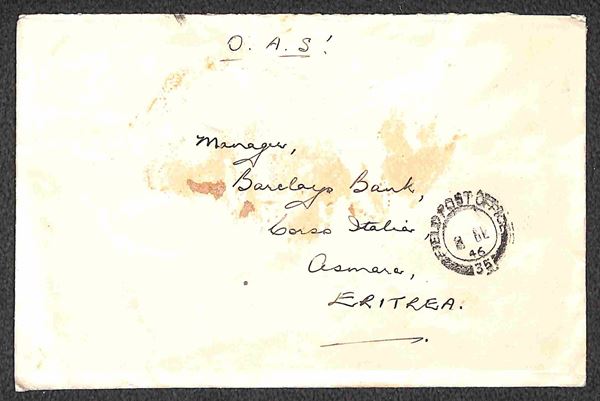 O. A. S!
Manager,
Barclays Bank,
Corso Italia,
Asmara,
ERITREA.
FIELD POST OFFICE
DE
46